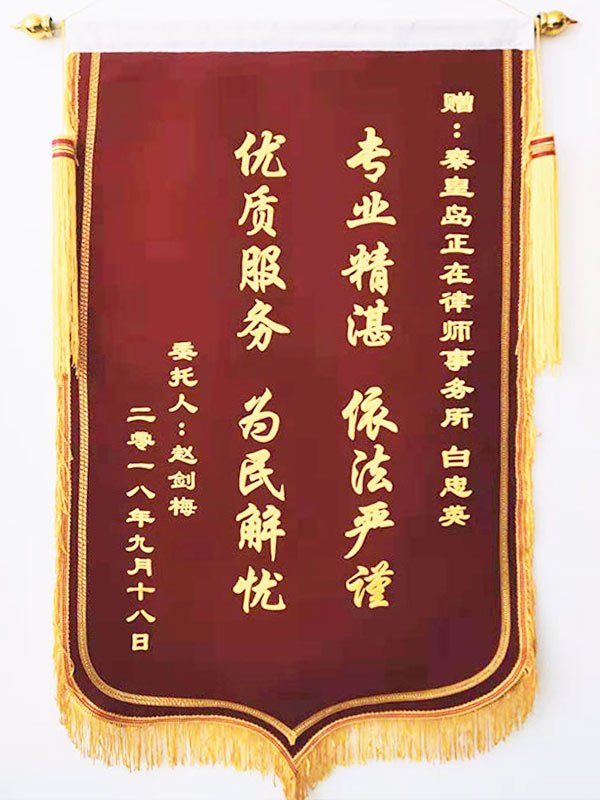 赠：秦皇岛正在律师事务所 白忠英
专业精湛 依法严谨
优质服务 为民解忧
委托人：赵剑梅
二零一八年九月十八日